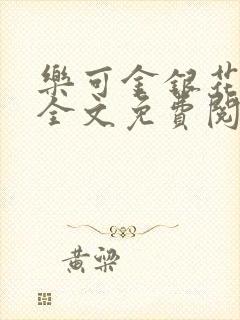 樂可金銀花
全文免費閱
黃梁